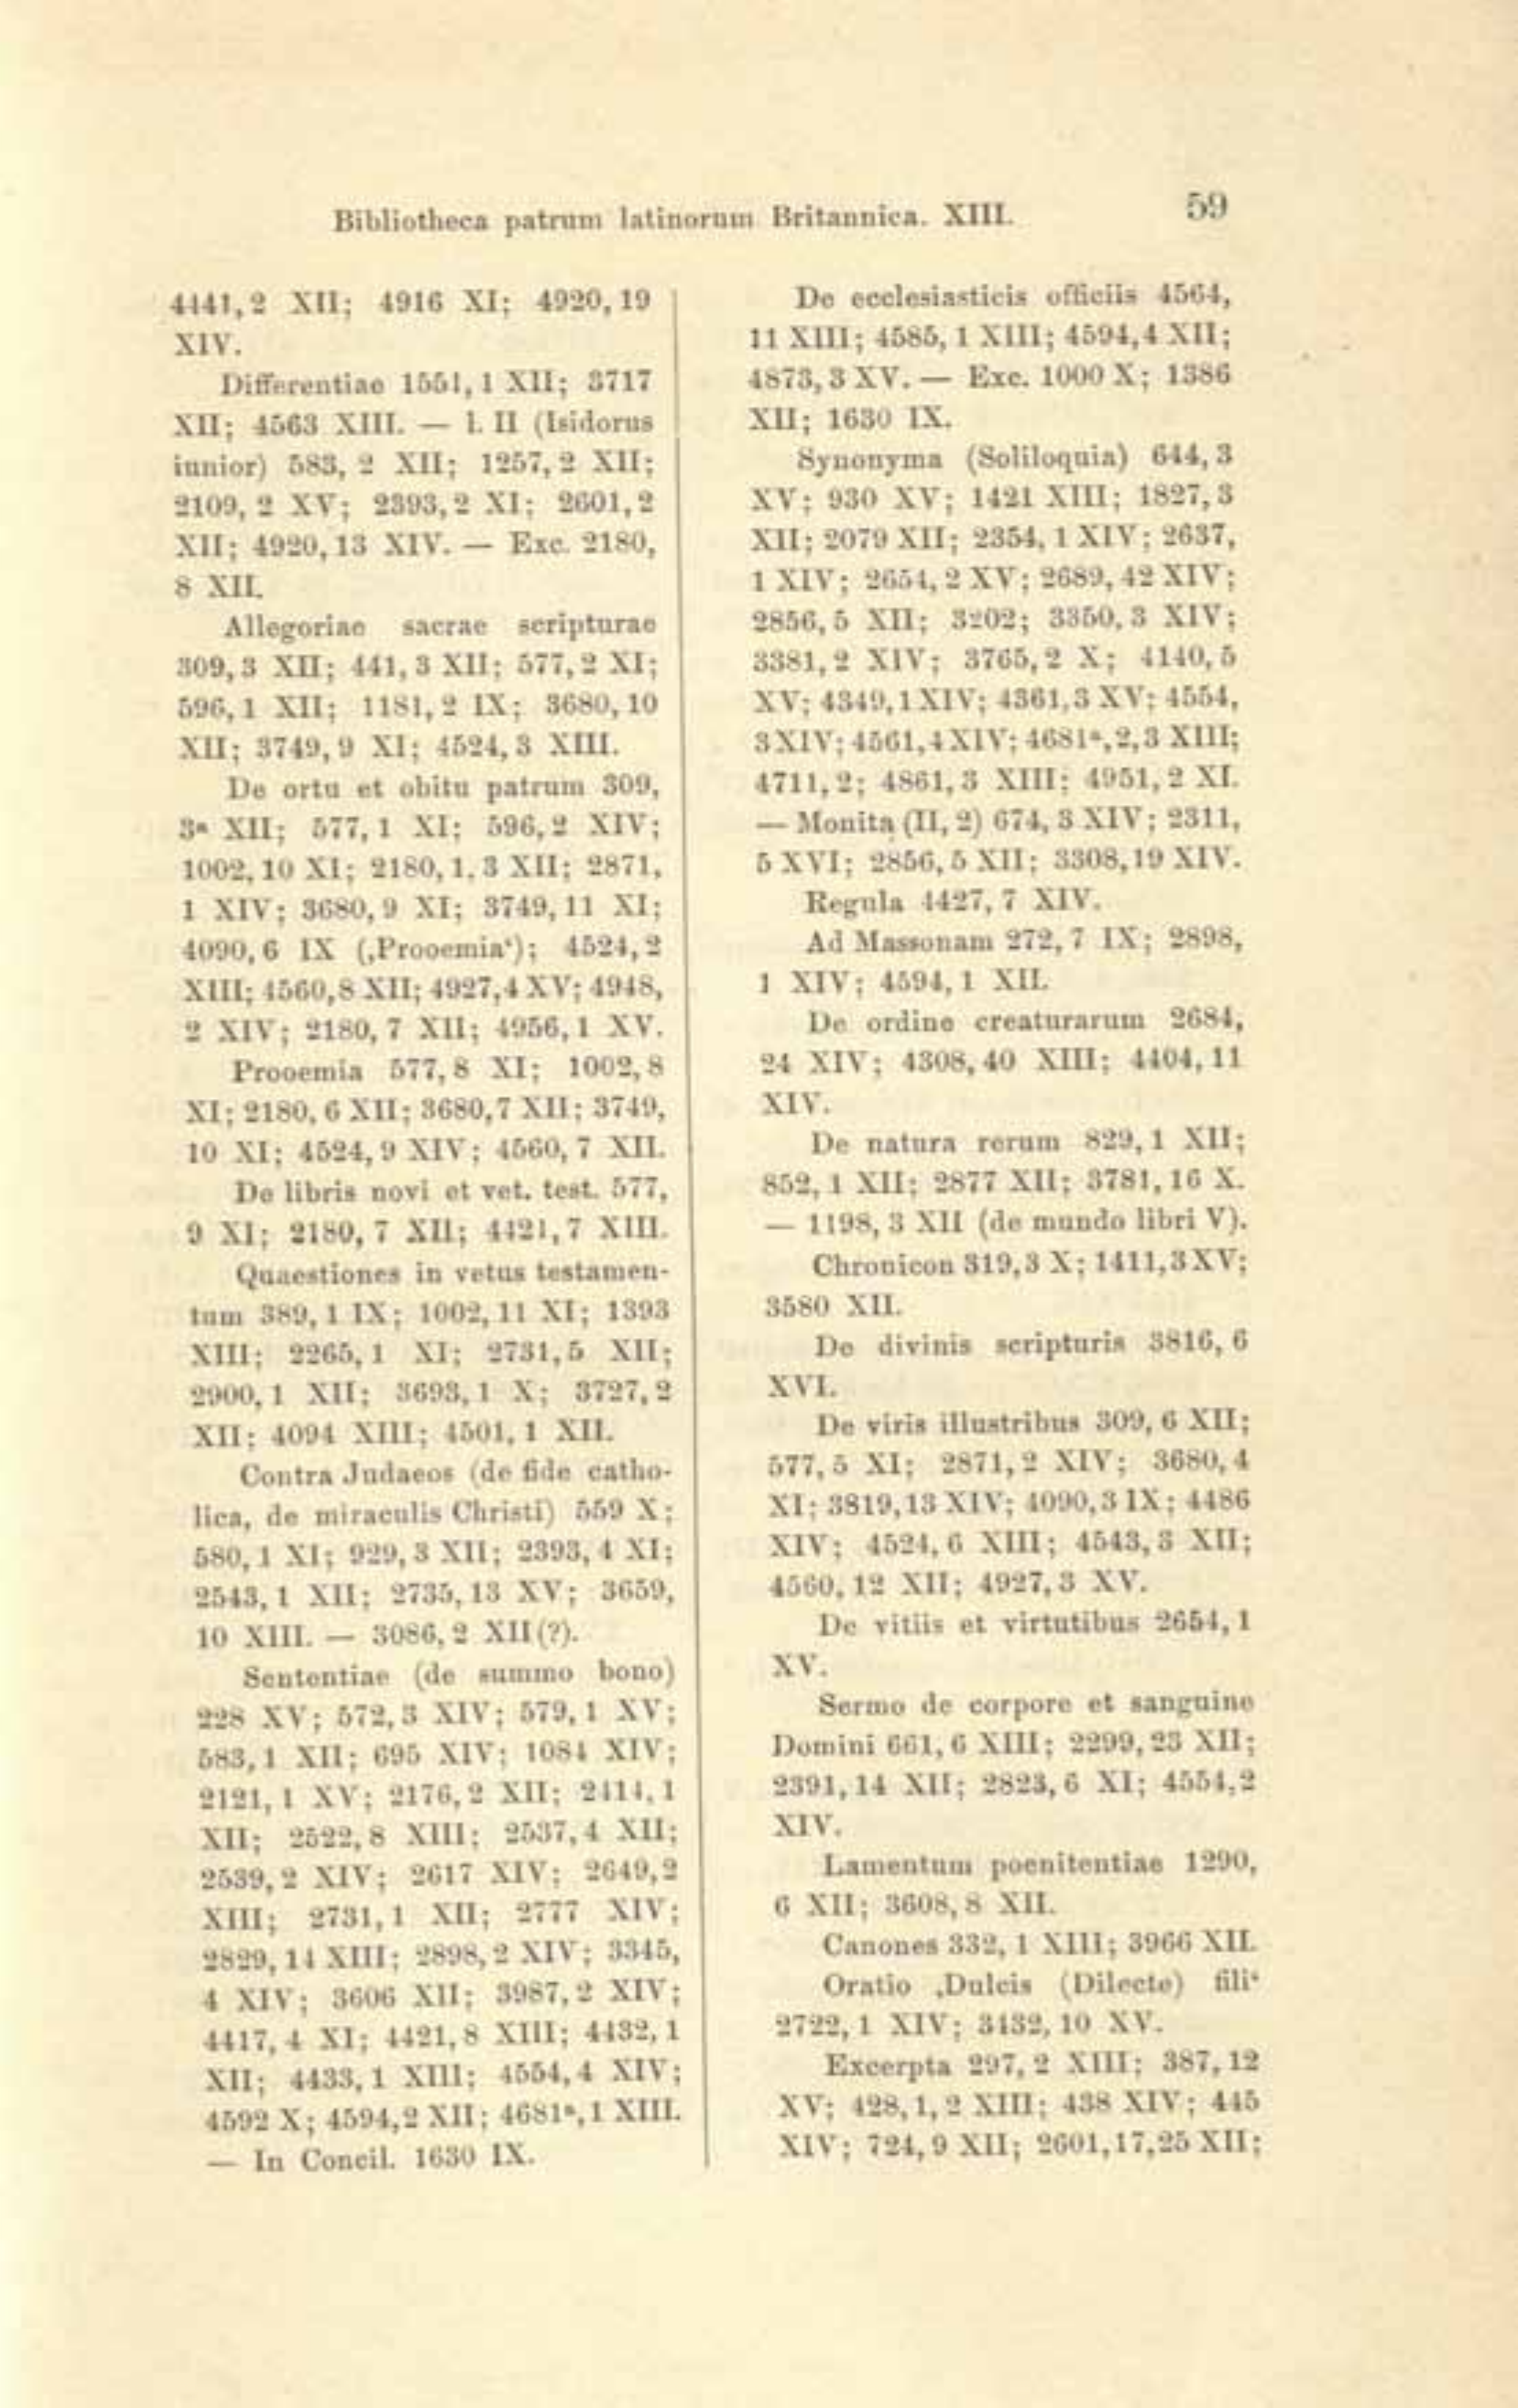 Bibliotheca patrum latinorum Britannica. XIII. 59
4441, 2 XII; 4916 XI; 4920, 19
XIV.
Differentiae 1551, 1 XII; 3717
XII; 4563 XIII. — l. II (Isidorus
iunior) 583, 2 XII; 1257, 2 XII;
2109, 2 XV; 2393, 2 XI; 2601, 2
XII; 4920, 13 XIV. — Exc. 2180,
8 XII.
Allegoriae sacrae scripturae
309, 3 XII; 441, 3 XII; 577, 2 XI;
596, 1 XII; 1181, 2 IX; 3680, 10
XII; 3749, 9 XI; 4524, 3 XIII.
De ortu et obitu patrum 309,
3ª XII; 577, 1 XI; 596, 2 XIV;
1002, 10 XI; 2180, 1, 3 XII; 2871,
1 XIV; 3680, 9 XI; 3749, 11 XI;
4090, 6 IX (‚Prooemia‘); 4524, 2
XIII; 4560, 8 XII; 4927, 4 XV; 4948,
2 XIV; 2180, 7 XII; 4956, 1 XV.
Prooemia 577, 8 XI; 1002, 8
XI; 2180, 6 XII; 3680, 7 XII; 3749,
10 XI; 4524, 9 XIV; 4560, 7 XII.
De libris novi et vet. test. 577,
9 XI; 2180, 7 XII; 4421, 7 XIII.
Quaestiones in vetus testamen-
tum 389, 1 IX; 1002, 11 XI; 1393
XIII; 2265, 1 XI; 2731, 5 XII;
2900, 1 XII; 3693, 1 X; 3727, 2
XII; 4094 XIII; 4501, 1 XII.
Contra Judaeos (de fide catho-
lica, de miraculis Christi) 559 X;
580, 1 XI; 929, 3 XII; 2393, 4 XI;
2543, 1 XII; 2735, 13 XV; 3659,
10 XIII. — 3086, 2 XII (?).
Sententiae (de summo bono)
228 XV; 572, 3 XIV; 579, 1 XV;
583, 1 XII; 695 XIV; 1084 XIV;
2121, 1 XV; 2176, 2 XII; 2414, 1
XII; 2522, 8 XIII; 2537, 4 XII;
2539, 2 XIV; 2617 XIV; 2649, 2
XIII; 2731, 1 XII; 2777 XIV;
2829, 14 XIII; 2898, 2 XIV; 3345,
4 XIV; 3606 XII; 3987, 2 XIV;
4417, 4 XI; 4421, 8 XIII; 4432, 1
XII; 4433, 1 XIII; 4554, 4 XIV;
4592 X; 4594, 2 XII; 4681ª, 1 XIII.
— In Concil. 1630 IX.
De ecclesiasticis officiis 4564,
11 XIII; 4585, 1 XIII; 4594, 4 XII;
4873, 3 XV. — Exc. 1000 X; 1386
XII; 1630 IX.
Synonyma (Soliloquia) 644, 3
XV; 930 XV; 1421 XIII; 1827, 3
XII; 2079 XII; 2354, 1 XIV; 2637,
1 XIV; 2654, 2 XV; 2689, 42 XIV;
2856, 5 XII; 3202; 3350, 3 XIV;
3381, 2 XIV; 3765, 2 X; 4140, 5
XV; 4349, 1 XIV; 4361, 3 XV; 4554,
3 XIV; 4561, 4 XIV; 4681ª, 2, 3 XIII;
4711, 2; 4861, 3 XIII; 4951, 2 XI.
— Monita (II, 2) 674, 3 XIV; 2311,
5 XVI; 2856, 5 XII; 3308, 19 XIV.
Regula 4427, 7 XIV.
Ad Massonam 272, 7 IX; 2898,
1 XIV; 4594, 1 XII.
De ordine creaturarum 2684,
24 XIV; 4308, 40 XIII; 4404, 11
XIV.
De natura rerum 829, 1 XII;
852, 1 XII; 2877 XII; 3781, 16 X.
— 1198, 3 XII (de mundo libri V).
Chronicon 319, 3 X; 1411, 3 XV;
3580 XII.
De divinis scripturis 3816, 6
XVI.
De viris illustribus 309, 6 XII;
577, 5 XI; 2871, 2 XIV; 3680, 4
XI; 3819, 13 XIV; 4090, 3 IX; 4486
XIV; 4524, 6 XIII; 4543, 3 XII;
4560, 12 XII; 4927, 3 XV.
De vitiis et virtutibus 2654, 1
XV.
Sermo de corpore et sanguine
Domini 661, 6 XIII; 2299, 23 XII;
2391, 14 XII; 2823, 6 XI; 4554, 2
XIV.
Lamentum poenitentiae 1290,
6 XII; 3608, 8 XII.
Canones 332, 1 XIII; 3966 XII.
Oratio ‚Dulcis (Dilecte) fili‘
2722, 1 XIV; 3432, 10 XV.
Excerpta 297, 2 XIII; 387, 12
XV; 428, 1, 2 XIII; 438 XIV; 445
XIV; 724, 9 XII; 2601, 17, 25 XII;